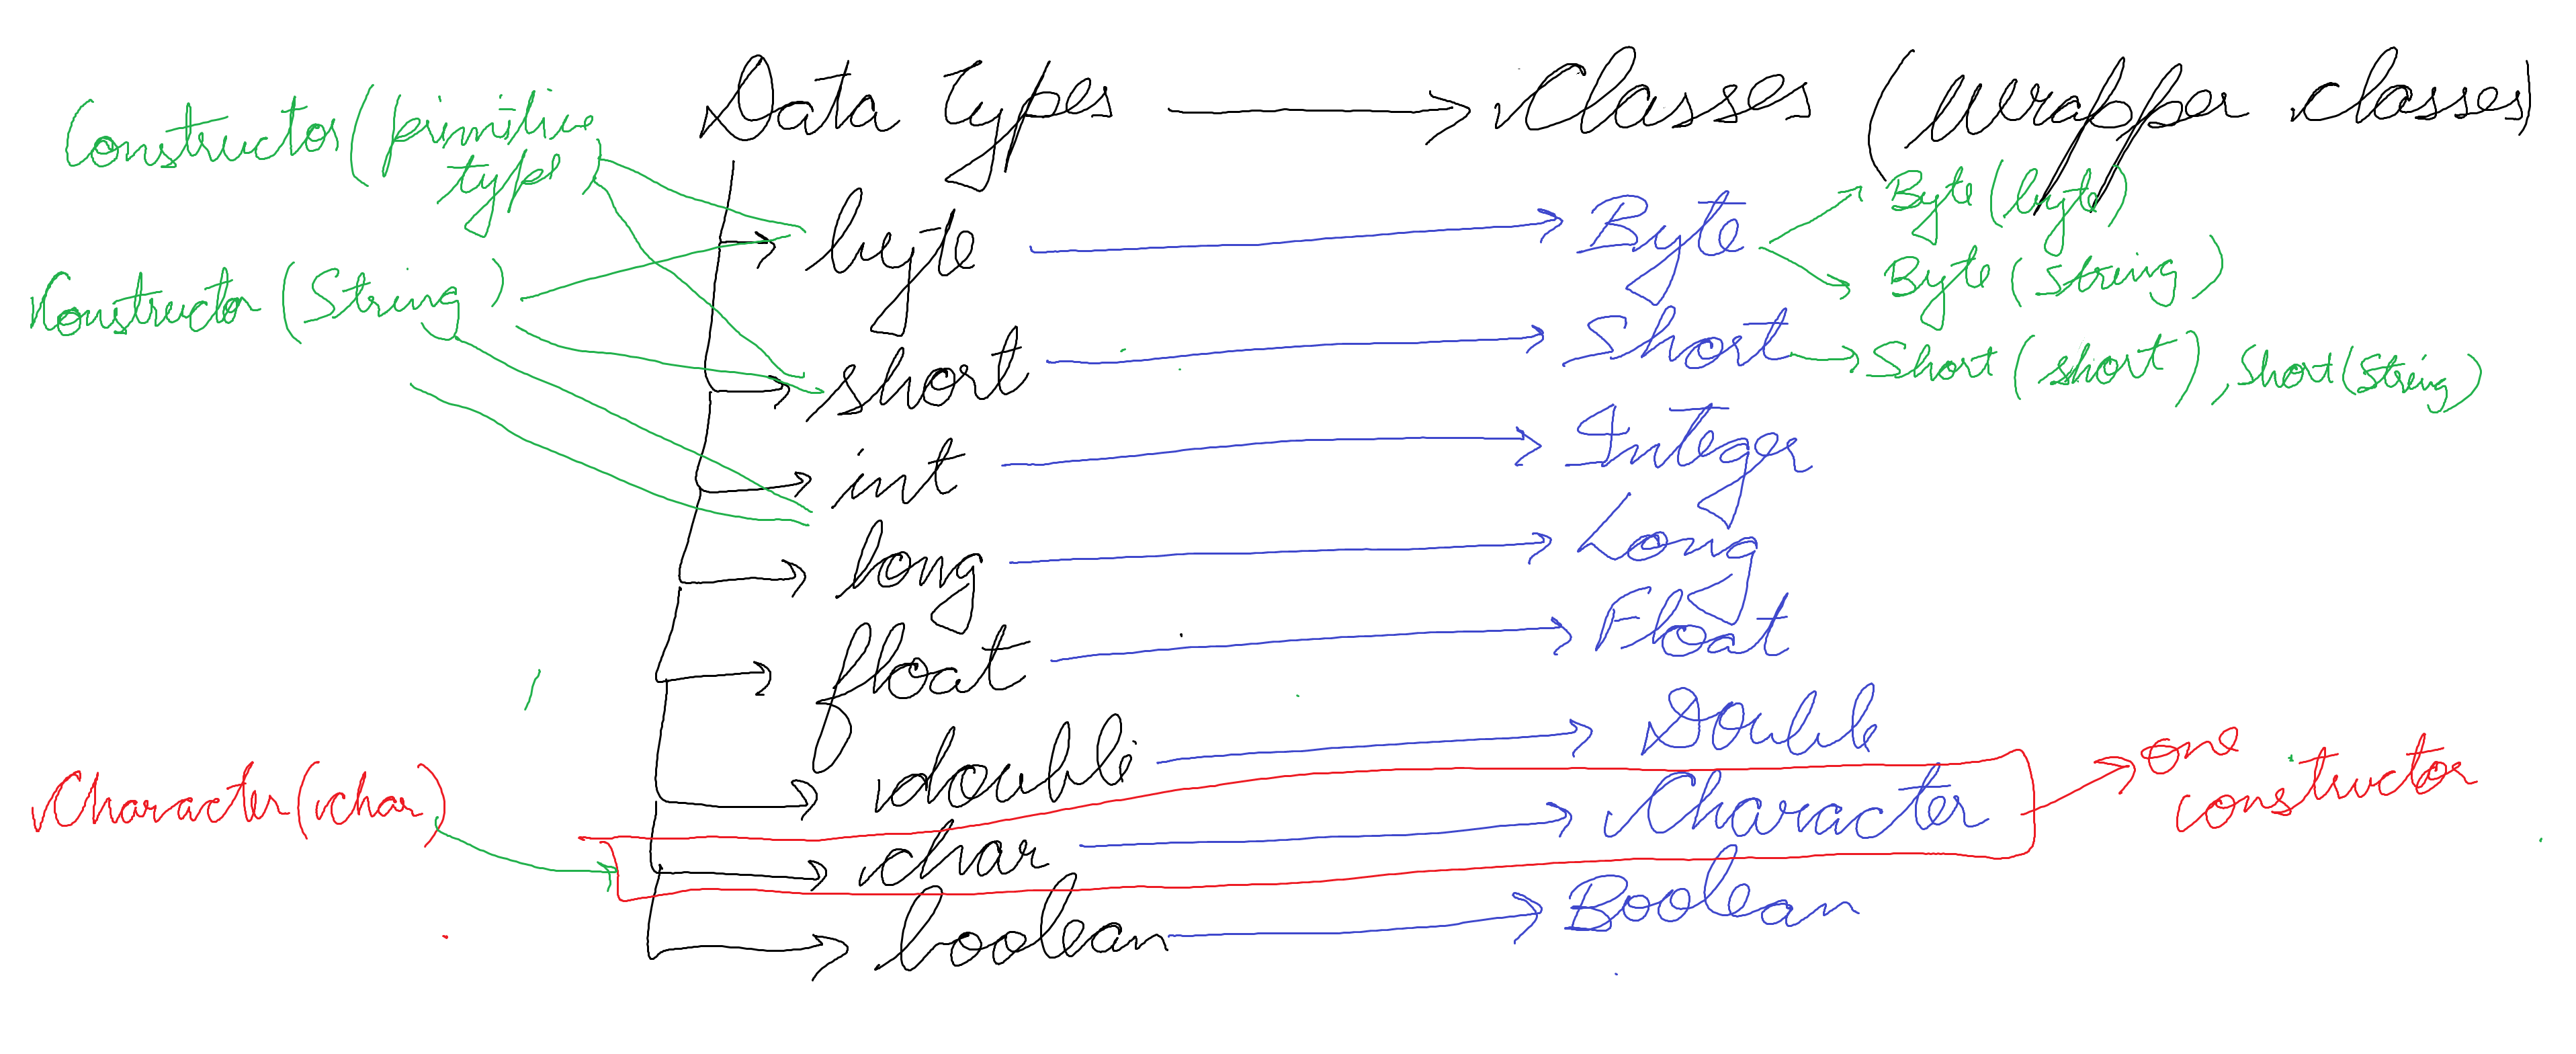 Data types → Classes (Wrapper classes)
Constructor (primitive
type)
Constructor (String)
byte → Byte
Byte (byte)
Byte (String)
short → Short → Short (short), Short (String)
int → Integer
long → Long
float → Float
double → Double
Character (char)
char → Character → one
constructor
boolean → Boolean